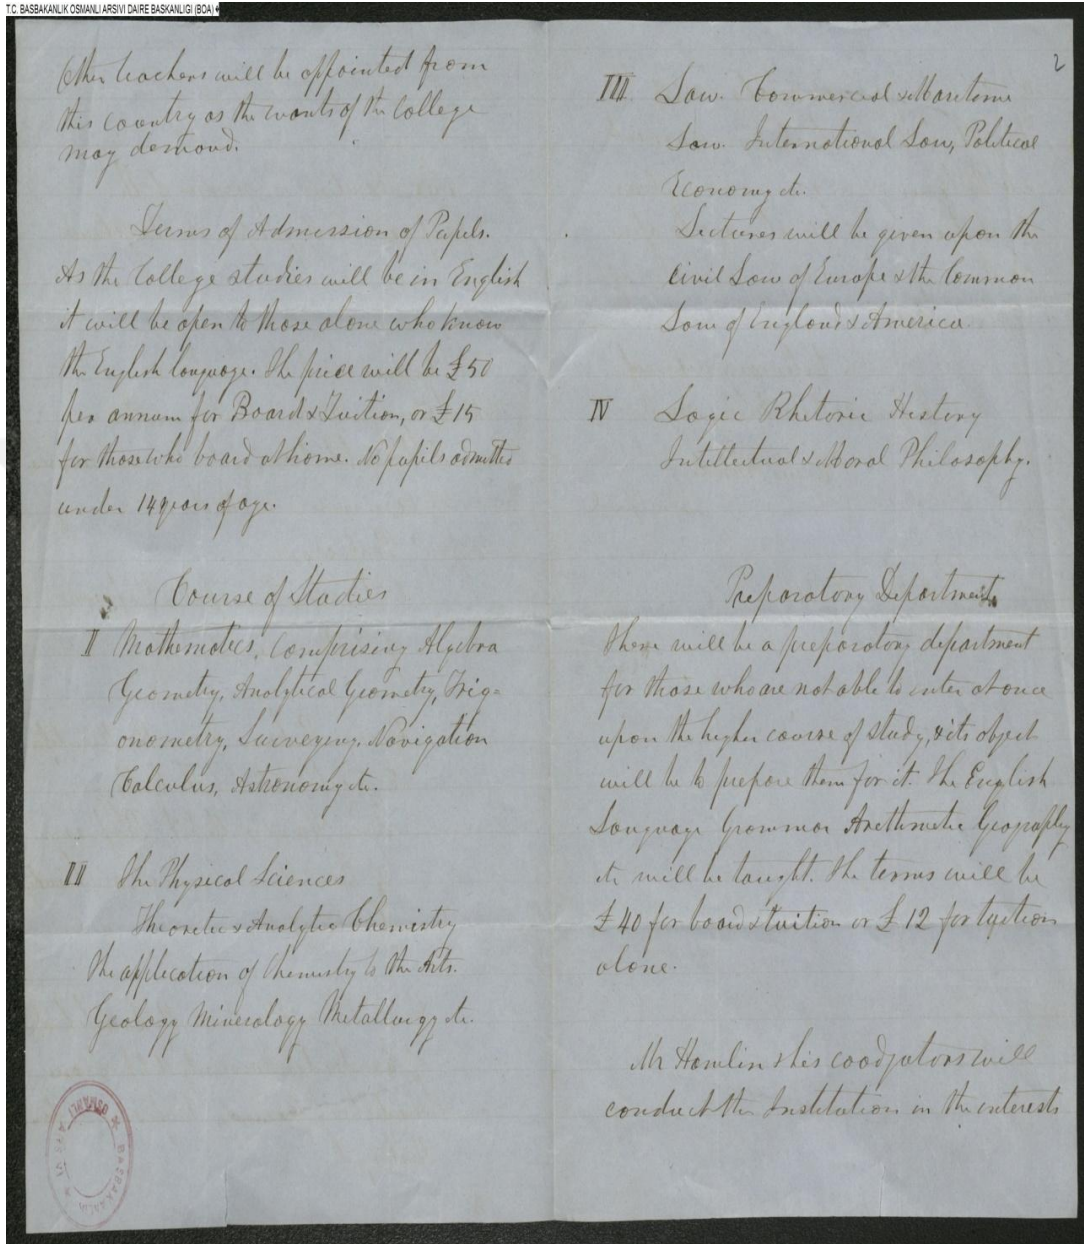 T.C. BASBAKANLIK OSMANLI ARSIVI DAIRE BASKANLIGI (BOA)
Other teachers will be appointed from
this country as the wants of the College
may demand.
Terms of Admission of Pupils.
As the College studies will be in English
it will be open to those alone who know
the English language. The price will be £50
per annum for Board & Tuition, or £15
for those who board at home. No pupils admitted
under 14 years of age.
Course of Studies
I Mathematics, comprising Algebra
Geometry, Analytical Geometry, Trig-
onometry, Surveying, Navigation
Calculus, Astronomy &c.
II The Physical Sciences
Theoretic & Analytic Chemistry
the application of Chemistry to the Arts.
Geology Mineralogy Metallurgy &c.
OSMANLI ARŞİVİ BAŞBAKANLIK
2
III Law. Commercial & Maritime
Law. International Law, Political
Economy &c.
Lectures will be given upon the
Civil Law of Europe & the Common
Law of England & America
IV Logic Rhetoric History
Intellectual & Moral Philosophy.
Preparatory Department
There will be a preparatory department
for those who are not able to enter at once
upon the higher course of study, & its object
will be to prepare them for it. The English
Language Grammar Arithmetic Geography
&c will be taught. The terms will be
£40 for board & tuition or £12 for tuition
alone.
Mr Hamlin & his coadjutors will
conduct the Institution in the interests